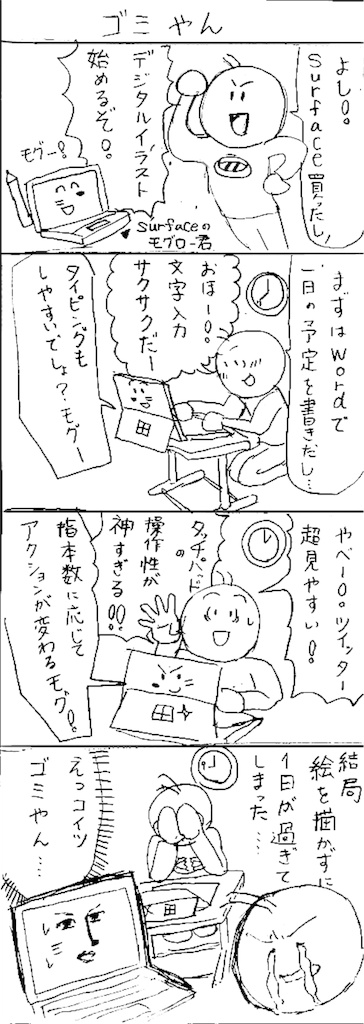 ゴミやん
よし!。
Surface買ったし、
デジタルイラスト
始めるぞ!。
モグー!
Surfaceの
モグロー君
まずはWordで
一日の予定を書きだし…
おほー!。
文字入力
サクサクだー
タイピングも
しやすいでしょ?モグー
やべー!。ツイッター
超見やすい!。
タッチパッド
の
操作性が
神すぎる!!
指本数に応じて
アクションが変わるモグ!。
結局
絵を描かずに
1日が過ぎて
しまった……
えっコイツ
ゴミやん…